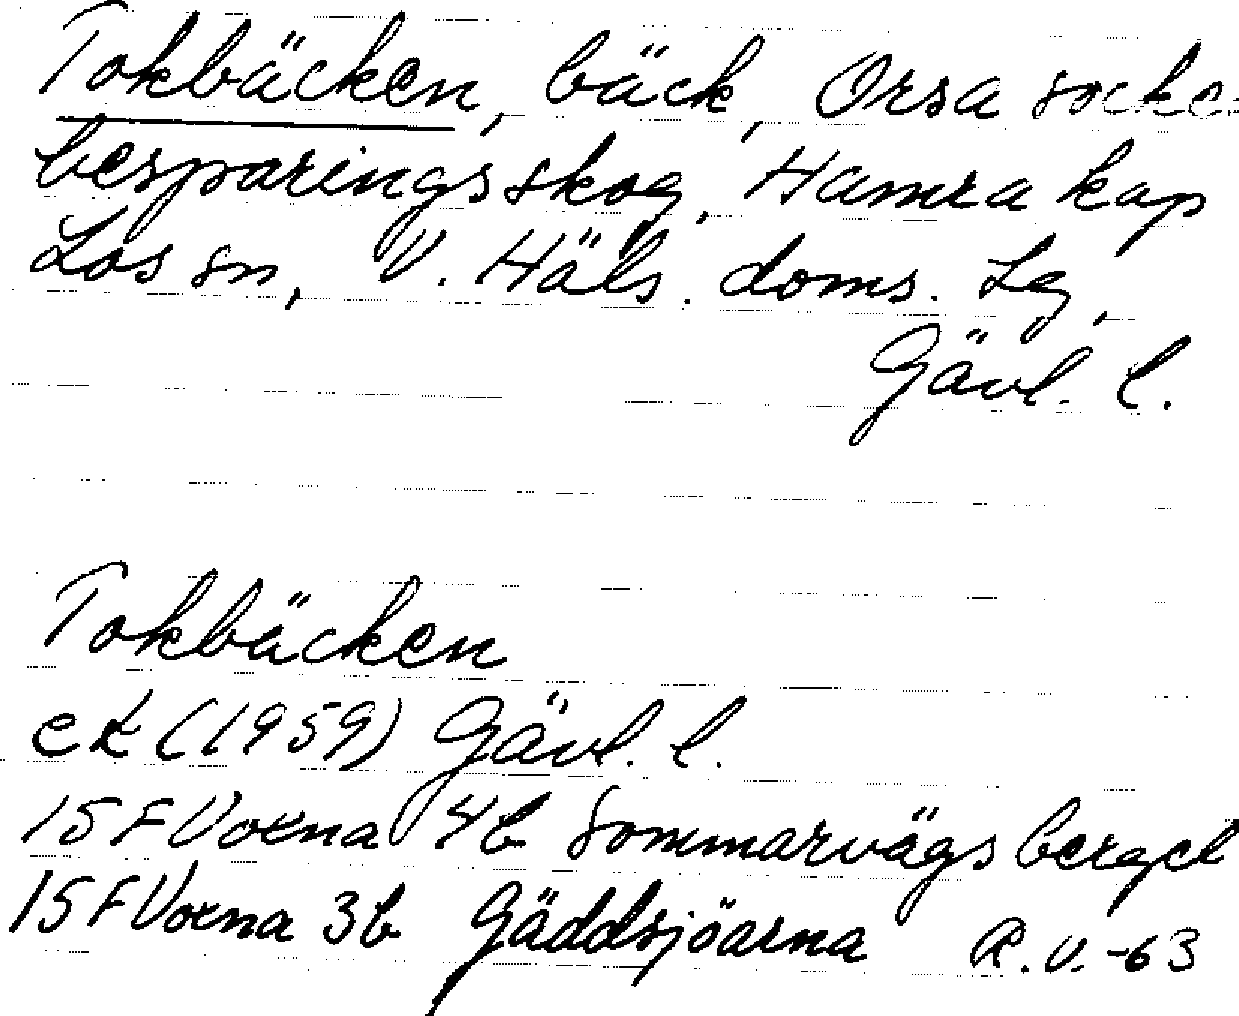 Tokbäcken, bäck, Orsa socke
besparingsskog, Hamra kap
Los sn, V. Häls. doms. Lg,
Gävl. l.
Tokbäcken
ek (1959) Gävl. l.
15F Voxna 4b Sommarvägsberget
15F Voxna 3b Gäddsjöarna R.V.-63